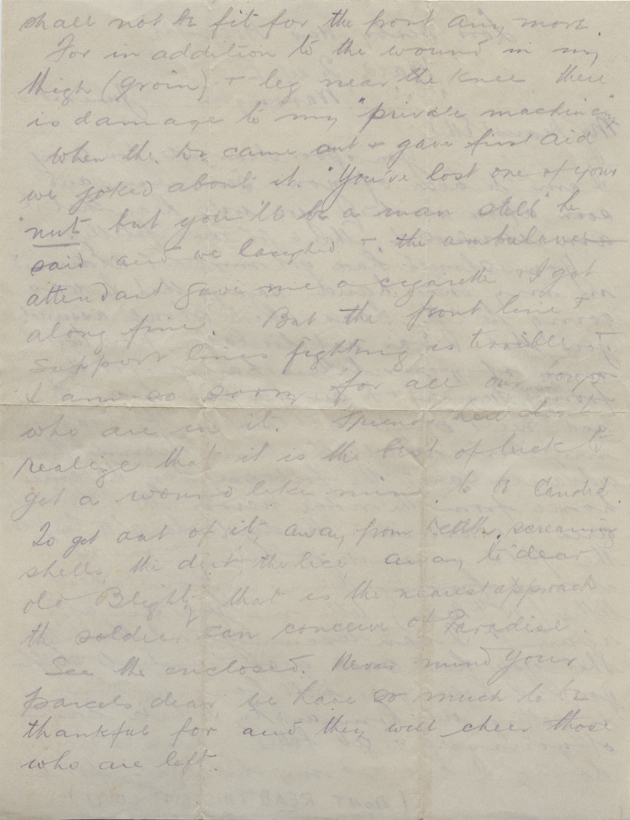 shall not be fit for the front any more.
For in addition to the wound in my
thigh (groin) + leg near the knee there
is damage to my "private machinery"
When the Dr came out + gave first aid
we joked about it. "You've lost one of your
"nuts" but you'll be a man still" he
said and we laughed +. the ambulance
attendant gave me a cigarette + I got
along fine. But the front line +
support lines fighting is terrible +
I am so sorry for all our boys
who are in it. Friends at home don't
realize that it is the best of luck to
get a wound like mine, to be candid.
To get out of it, away from death, screaming
shells, the dirt the lice away to dear
old Blighty that is the nearest approach
the soldier can conceive of Paradise.
See the enclosed. Never mind your
parcels, dear we have so much to be
thankful for and they will cheer those
who are left.